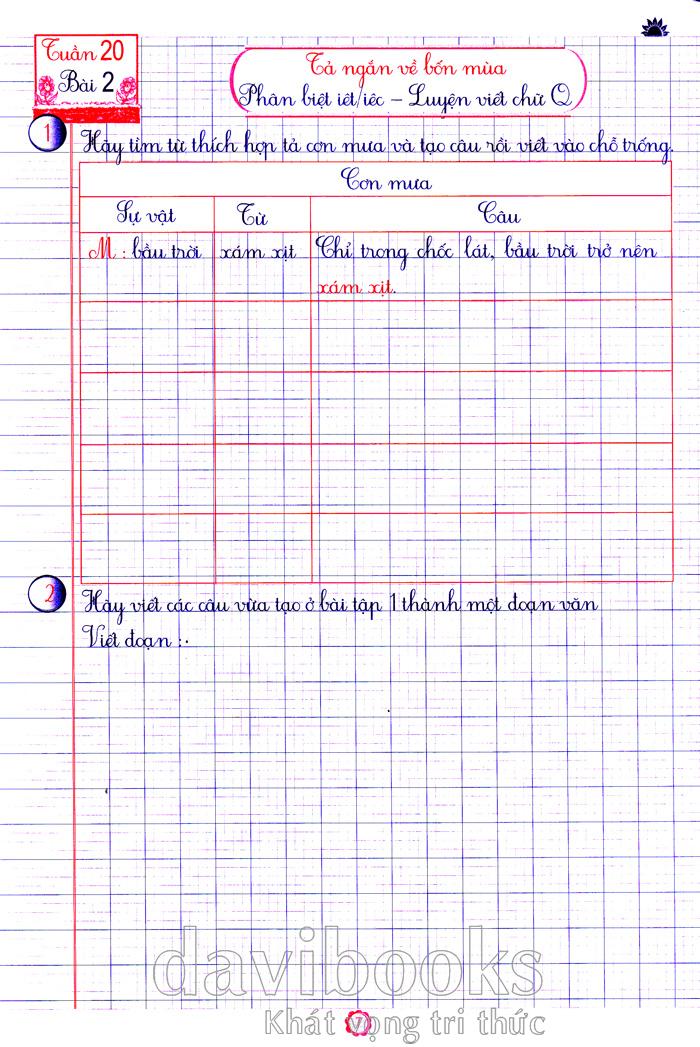 Tuần 20
Bài 2
Tả ngắn về bốn mùa
Phân biệt iêt/iêc – Luyện viết chữ Q
1 Hãy tìm từ thích hợp tả cơn mưa và tạo câu rồi viết vào chỗ trống.
Cơn mưa
Sự vật Từ Câu
M : bầu trời xám xịt Chỉ trong chốc lát, bầu trời trở nên
xám xịt.
2 Hãy viết các câu vừa tạo ở bài tập 1 thành một đoạn văn
Viết đoạn :.
davibooks
Khát vọng tri thức